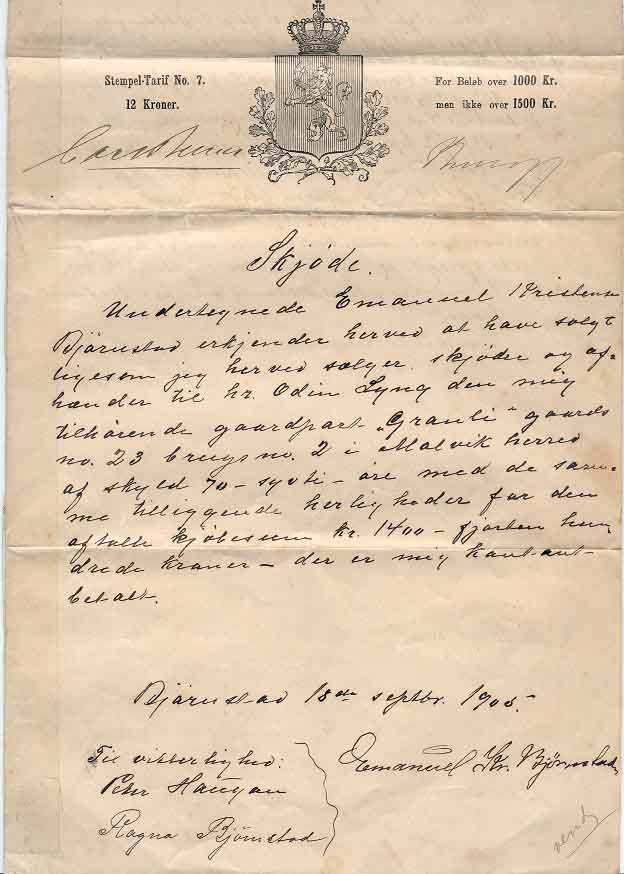 Stempel-Tarif No. 7.
12 Kroner.
For Beløb over 1000 Kr.
men ikke over 1500 Kr.
Skjøde.
Undertegnede Emanuel Kristensen
Bjørnstad erkjender herved at have solgt
ligesom jeg herved sælger, skjøder og af-
hænder til hr. Odin Lyng den mig
tilhørende gaardpart „Granli“ gaards
no. 23 brugsno. 2 i Malvik herred
af skyld 70 – sytti – øre med de sam-
me tilliggende herligheder for den
aftalte kjøbesum kr. 1400 – fjorten hun
drede kroner – der er mig kontant
betalt.
Bjørnstad 18de septbr. 1905.
Til vitterlighed:
Peter Haugan
Ragna Bjørnstad
Emanuel Kr. Bjørnstad
vend